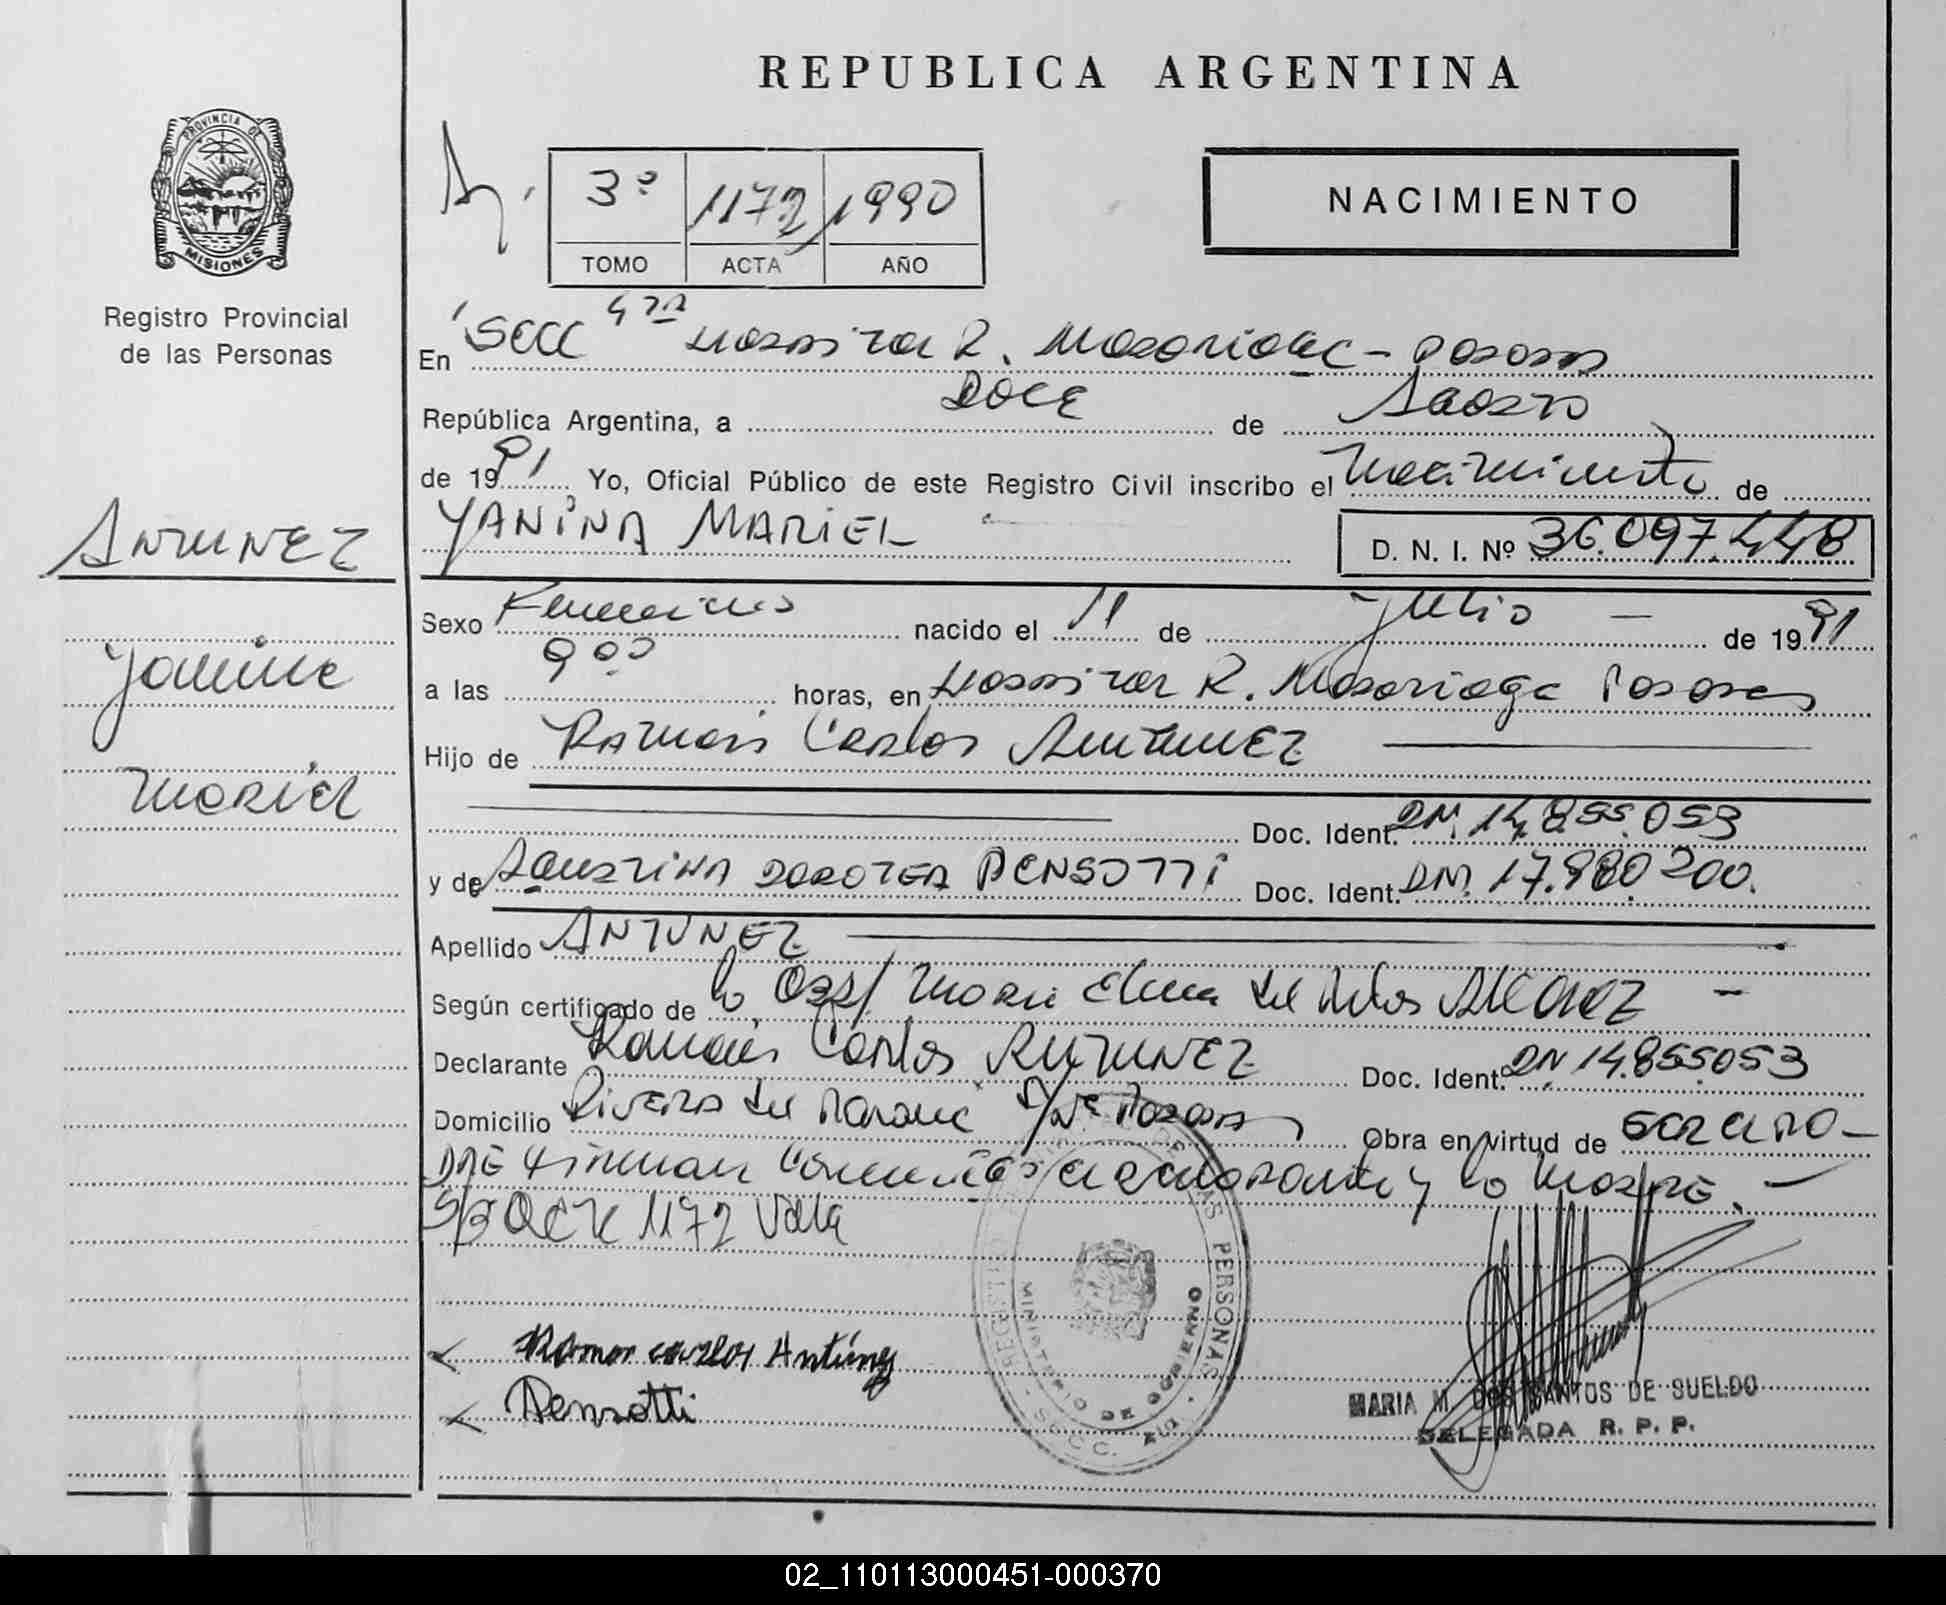 REPUBLICA ARGENTINA
PROVINCIA DE
MISIONES
Registro Provincial
de las Personas
3º 1172 1990
TOMO ACTA AÑO
NACIMIENTO
En Secc 4ta Hospital R. Madariaga - Posadas
República Argentina, a Doce de Agosto
de 1991 Yo, Oficial Público de este Registro Civil inscribo el Nacimiento de
YANINA MARIEL D. N. I. Nº 36.097.448
ANTUNEZ
Yanina
Mariel
Sexo Femenino nacido el 11 de Julio — de 1991
a las 9 00 horas, en Hospital R. Madariaga Posadas
Hijo de Ramón Carlos Antunez
Doc. Ident. DN. 14.855.053
y de Agustina DOROTEA PENSOTTI Doc. Ident. DNI. 17.980.200.
Apellido ANTUNEZ
Según certificado de la Obst Maria Elena del Alcaraz —
Declarante Ramón Carlos ANTUNEZ Doc. Ident. DN 14.855053
Domicilio Rivera del Parana S/Nº Posadas Obra en virtud de ser el PA-
DRE Firman el declarante y la MADRE. -
S/B Acta 1172 Vale
Ramon carlos Antunez
Pensotti
REGISTRO DE LAS PERSONAS
MINISTERIO DE GOBIERNO
SECC. 4ta
MARIA M. DOS SANTOS DE SUELDO
DELEGADA R. P. P.
02_110113000451-000370